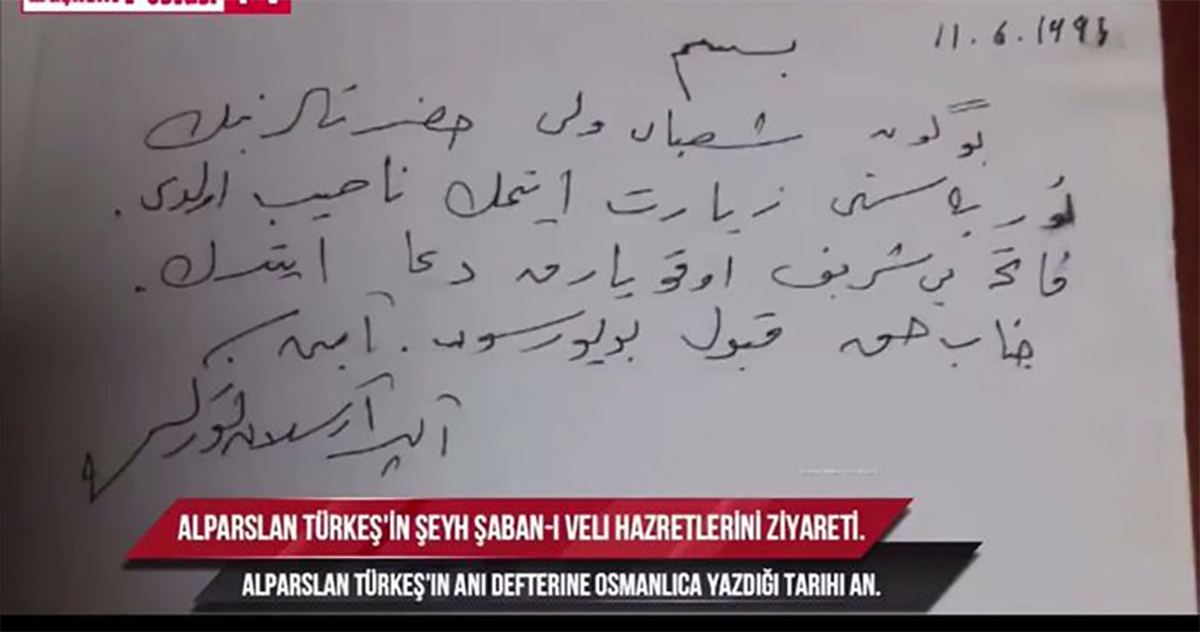 11.6.1993
بسم
بو گون شعبان ولی حضرتلرینك
تُوربه سنی زیارت ایتمك ناصیب اولدی.
فاتحۀ شریف اوقویارق دعا ایتدك.
جناب حق قبول بویورسون. آمین
آلپ آرسلان تورکش
ALPARSLAN TÜRKEŞ'İN ŞEYH ŞABAN-I VELI HAZRETLERİNİ ZİYARETİ.
ALPARSLAN TÜRKEŞ'IN ANI DEFTERINE OSMANLICA YAZDIĞI TARIHI AN.